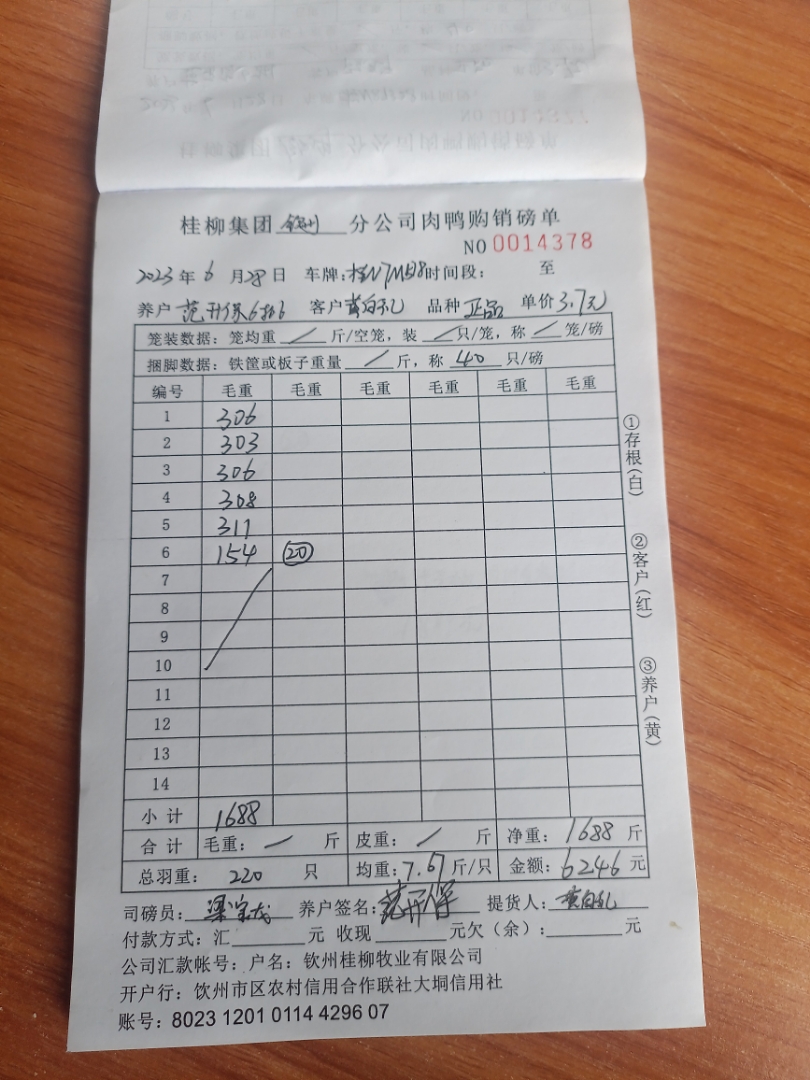 桂柳集团 钦州 分公司肉鸭购销磅单
NO 0014378
2023 年 6 月 28 日 车牌: 时间段: 至
养户 范开保 客户 黄自礼 品种 正品 单价 3.7元
笼装数据: 笼均重 / 斤/空笼, 装 / 只/笼, 称 / 笼/磅
捆脚数据: 铁筐或板子重量 / 斤, 称 40 只/磅
编号 毛重 毛重 毛重 毛重 毛重 毛重
1 306
2 303
3 306
4 308
5 311
6 154 20
7
8
9
10
11
12
13
14
小计 1688
合计 毛重: / 斤 皮重: / 斤 净重: 1688 斤
总羽重: 220 只 均重: 7.67 斤/只 金额: 6246 元
司磅员: 梁宝龙 养户签名: 范开保 提货人: 黄自礼
付款方式: 汇 元 收现 元欠(余): 元
公司汇款帐号: 户名: 钦州桂柳牧业有限公司
开户行: 饮州市区农村信用合作联社大垌信用社
账号: 8023 1201 0114 4296 07
①存根(白)
②客户(红)
③养户(黄)